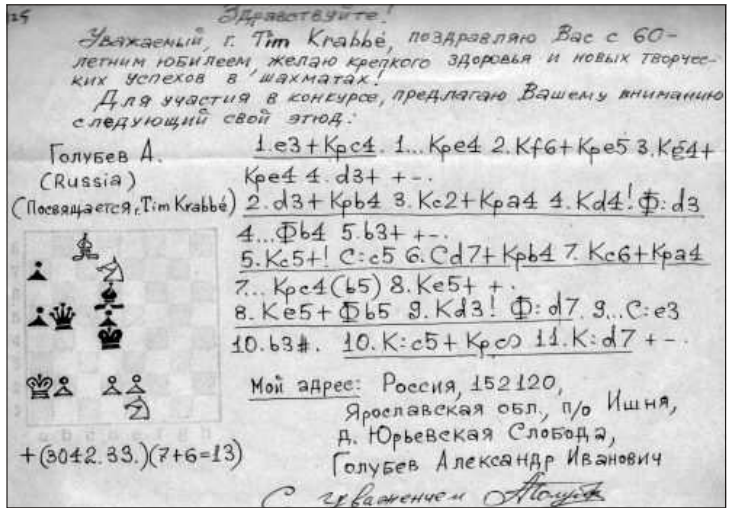 125
Здравствуйте!
Уважаемый, г. Tim Krabbé, поздравляю Вас с 60-
летним юбилеем, желаю крепкого здоровья и новых творчес-
ких успехов в шахматах!
Для участия в конкурсе, предлагаю Вашему вниманию
следующий свой этюд:
Голубев А.
(Russia)
(Посвящается г. Tim Krabbé)
1.e3+Kpc4. 1...Kpe4 2.Kf6+Kpe5 3.Kg4+
Kpe4 4.d3+ +-.
2.d3+Kpb4 3.Kc2+Kpa4 4.Kd4! Ф:d3
4...Фb4 5.b3+ +-.
5.Kc5+! C:c5 6.Cd7+Kpb4 7.Kc6+Kpa4
7...Kpc4(b5) 8.Ke5+ +-.
8.Ke5+ Фb5 9.Kd3! Ф:d7. 9...C:e3
10.b3#. 10.K:c5+Kp∞ 11.K:d7 +-.
a b c d e f g h
+(3042.33.)(7+6=13)
Мой адрес: Россия, 152120,
Ярославская обл., п/о Ишня,
д. Юрьевская Слобода,
Голубев Александр Иванович
С уважением